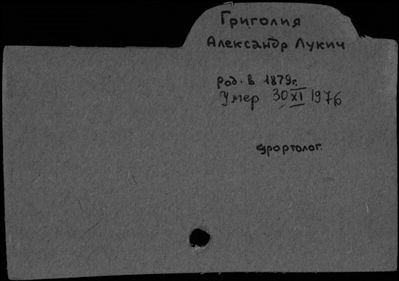 Григолия
Александр Лукич
род. в 1879г.
Умер 30 XI 1976
курортолог.